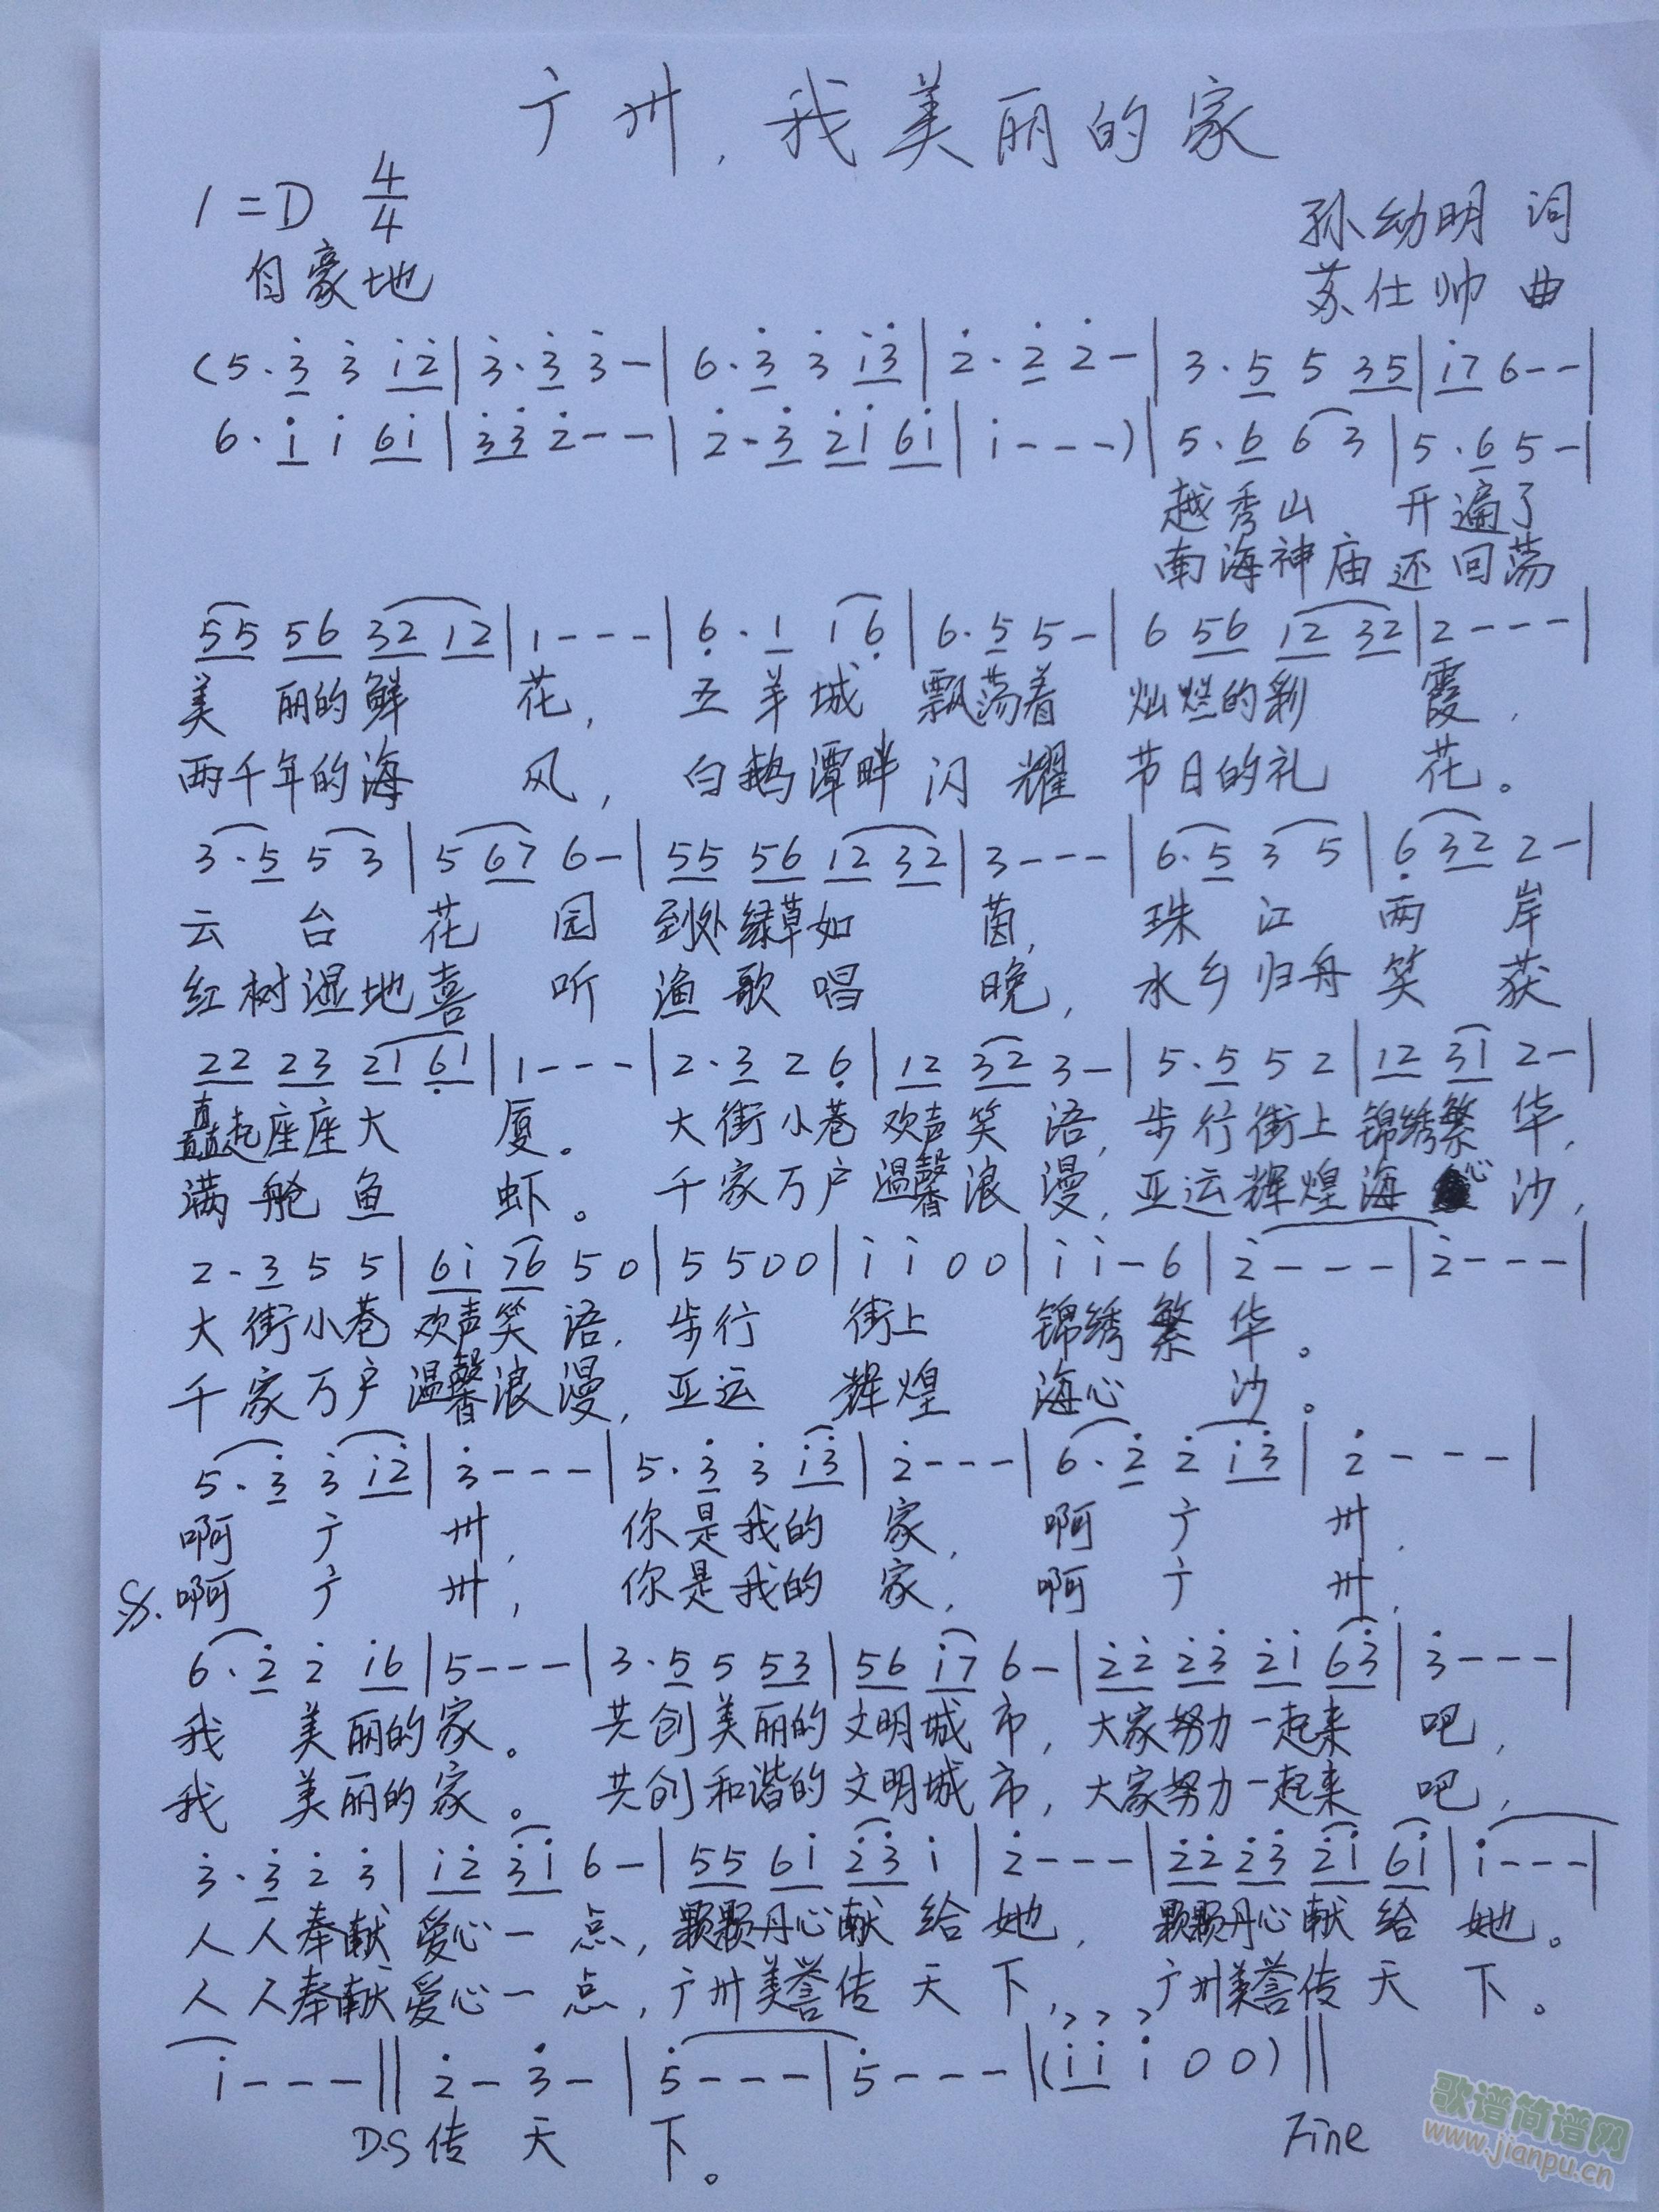 广州，我美丽的家
1=D 4/4
孙幼明 词
自豪地
苏仕帅 曲
(5·3̇ 3̇ 1̇2̇|3̇·3̇ 3̇-|6·3̇ 3̇ 1̇3̇|2̇·2̇ 2̇-|3·5 5 35|1̇7 6--|
6·1̇ 1̇ 61̇|3̇3̇ 2̇--|2̇·3̇ 2̇1̇ 61̇|1̇---)|5·6 6 3|5·6 5-|
越秀山 开遍了
南海神庙还回荡
55 56 32 12|1---|6̣·1 1 6̣|6·5 5-|6 56 12 32|2---|
美 丽的鲜 花， 五羊城 飘荡着 灿烂的彩 霞，
两千年的海 风， 白鹅潭畔闪耀 节日的礼 花。
3·5 5 3|5 67 6-|55 56 12 32|3---|6·5 3 5|6̣ 32 2-|
云 台 花 园 到处绿草如 茵， 珠 江 两 岸
红树湿地喜 听 渔歌唱 晚， 水乡归舟笑 获
22 23 21 6̣1|1---|2·3 2 6̣|12 32 3-|5·5 5 2|12 31 2-|
矗起座座大 厦。 大街小巷 欢声笑 语，步行街上锦绣繁 华，
满舱鱼 虾。 千家万户温馨浪 漫，亚运辉煌海心沙，
2·3 5 5|61̇ 76 5 0|5 5 0 0|1̇ 1̇ 0 0|1̇ 1̇-6|2̇---|2̇---|
大街小巷 欢声笑 语，步行 街上 锦绣繁 华。
千家万户温馨浪漫，亚运 辉煌 海心 沙。
5·3̇ 3̇ 1̇2̇|3̇---|5·3̇ 3̇ 1̇3̇|2̇---|6·2̇ 2̇ 1̇3̇|2̇---|
啊 广 州， 你是我的 家， 啊 广 州，
𝄋 啊 广 州， 你是我的 家， 啊 广 州，
6·2̇ 2̇ 1̇6|5---|3·5 5 53|56 1̇7 6-|2̇2̇ 2̇3̇ 2̇1̇ 63̇|3̇---|
我 美丽的家。 共创美丽的文明城市，大家努力一起来 吧，
我 美丽的家。 共创和谐的文明城市，大家努力一起来 吧，
3̇·3̇ 2̇ 3̇|1̇2̇ 3̇1̇ 6-|55 61̇ 2̇3̇ 1̇|2̇---|2̇2̇ 2̇3̇ 2̇1̇ 61̇|1̇---|
人人奉献爱心一 点，颗颗丹心献 给 她， 颗颗丹心献 给 她。
人人奉献爱心一 点，广州美誉传 天 下， 广州美誉传 天 下。
> > >
1̇---‖2̇-3̇-|5̇---|5̇---|(1̇1̇ 1̇ 0 0)‖
D.S 传 天 下。 Fine
歌谱简谱网
www.jianpu.cn